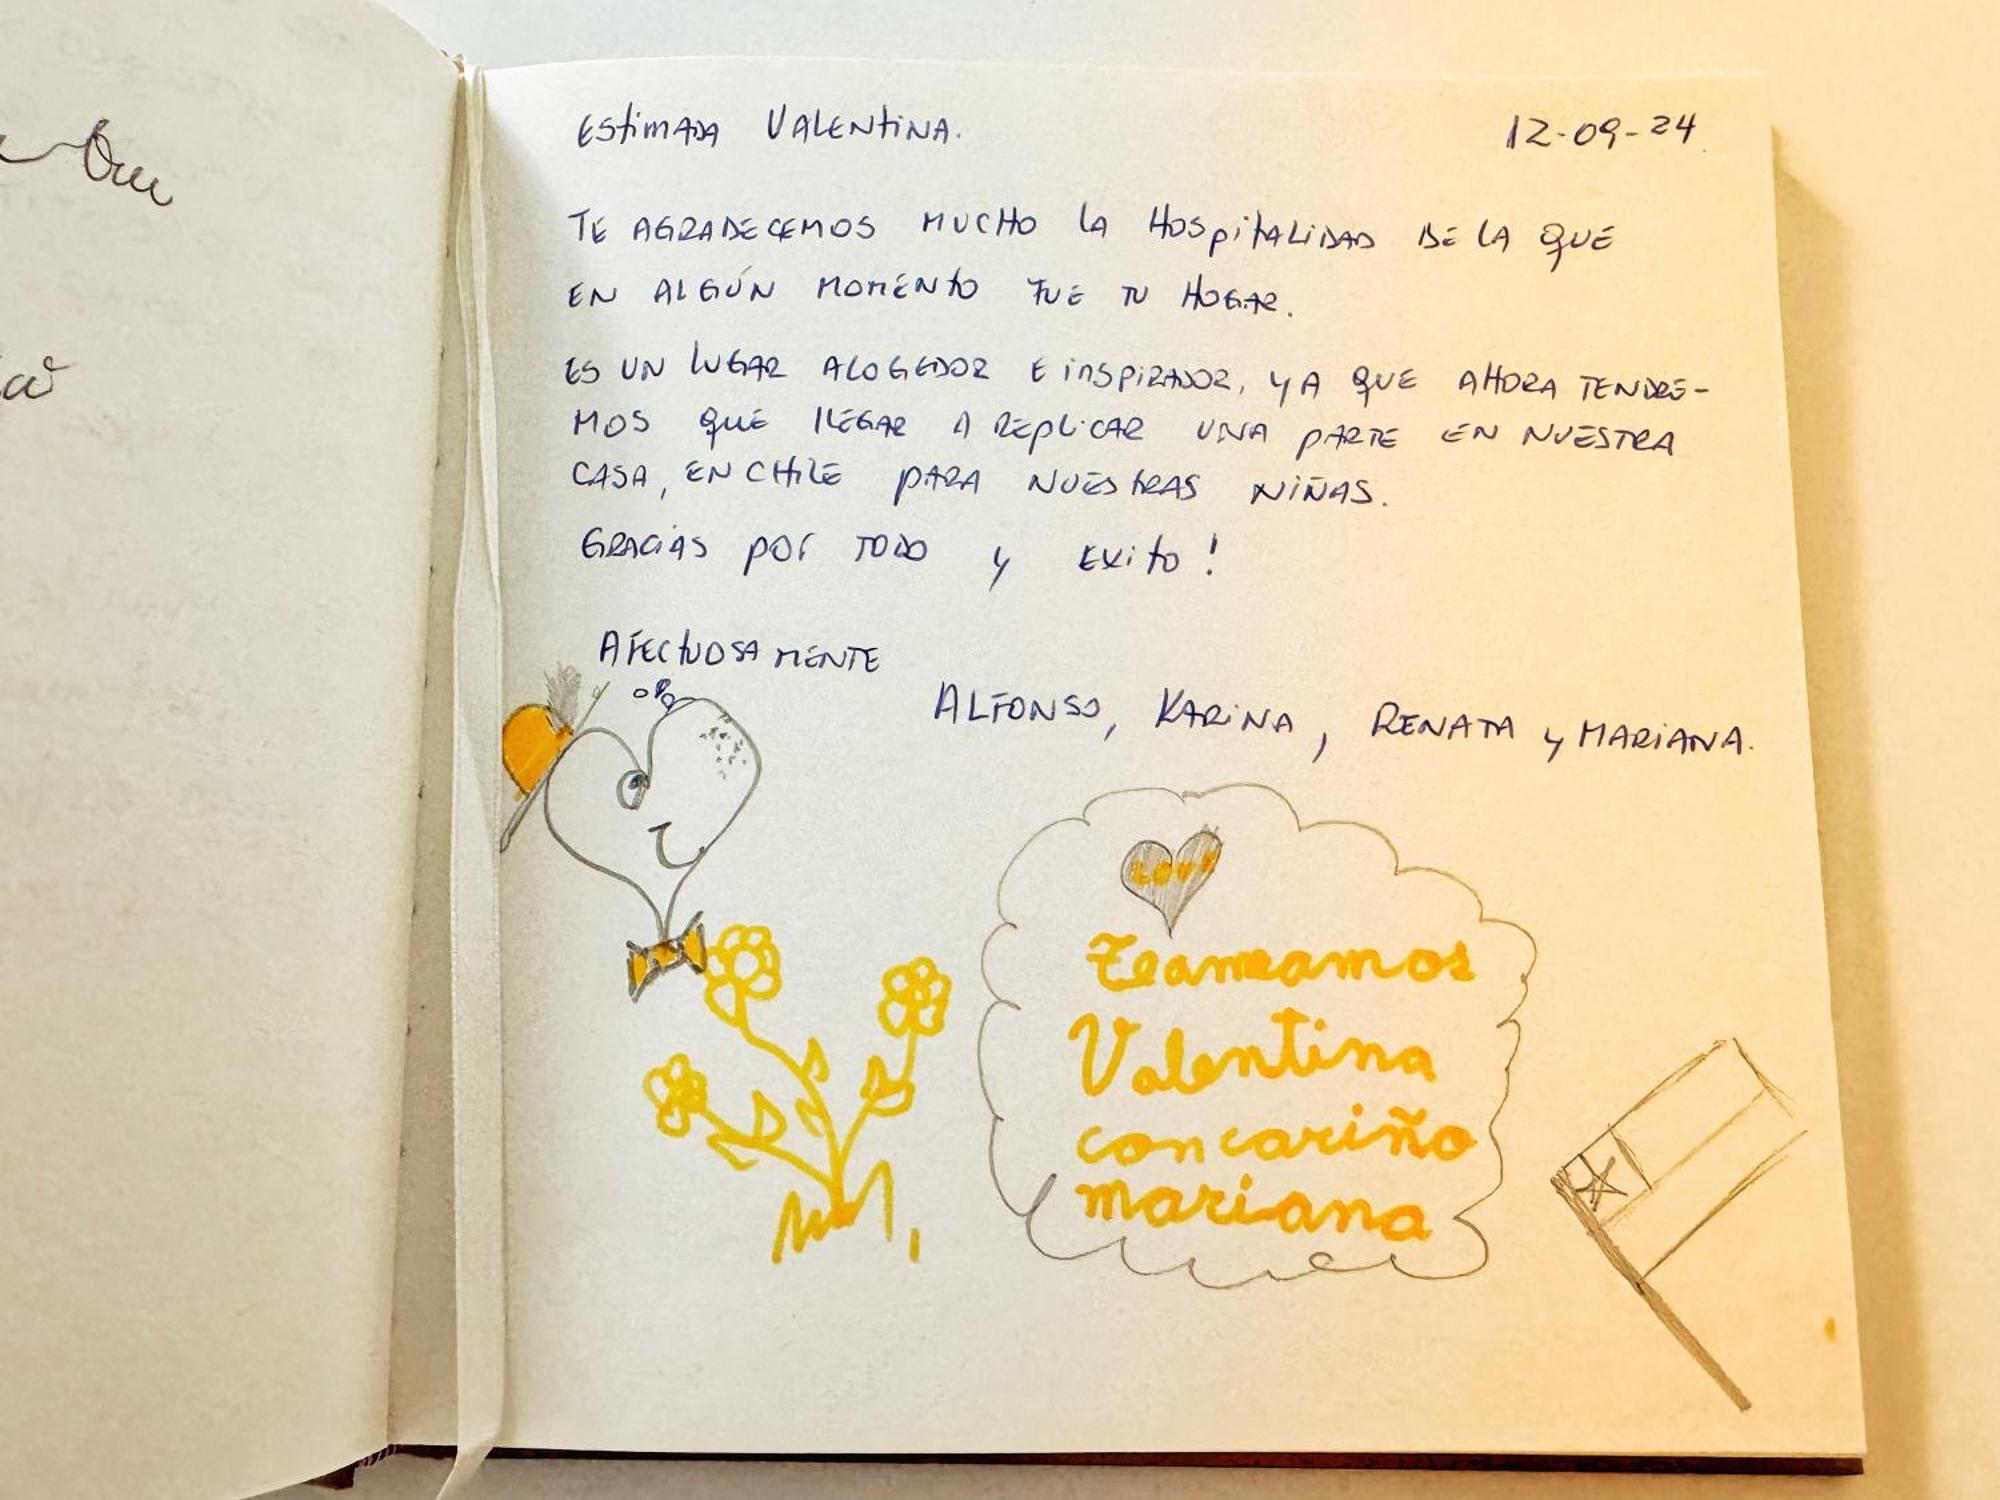 Estimada Valentina.
12-09-24
TE AGRADECEMOS MUCHO LA HOSPITALIDAD DE LA QUE
EN ALGÚN MOMENTO FUE TU HOGAR.
ES UN LUGAR ACOGEDOR E INSPIRADOR, YA QUE AHORA TENDRE-
MOS QUE LLEGAR A REPLICAR UNA PARTE EN NUESTRA
CASA, EN CHILE PARA NUESTRAS NIÑAS.
GRACIAS POR TODO Y EXITO!
AFECTUOSAMENTE
ALFONSO, KARINA, RENATA Y MARIANA.
LOVE
Valentina
con cariño
mariana